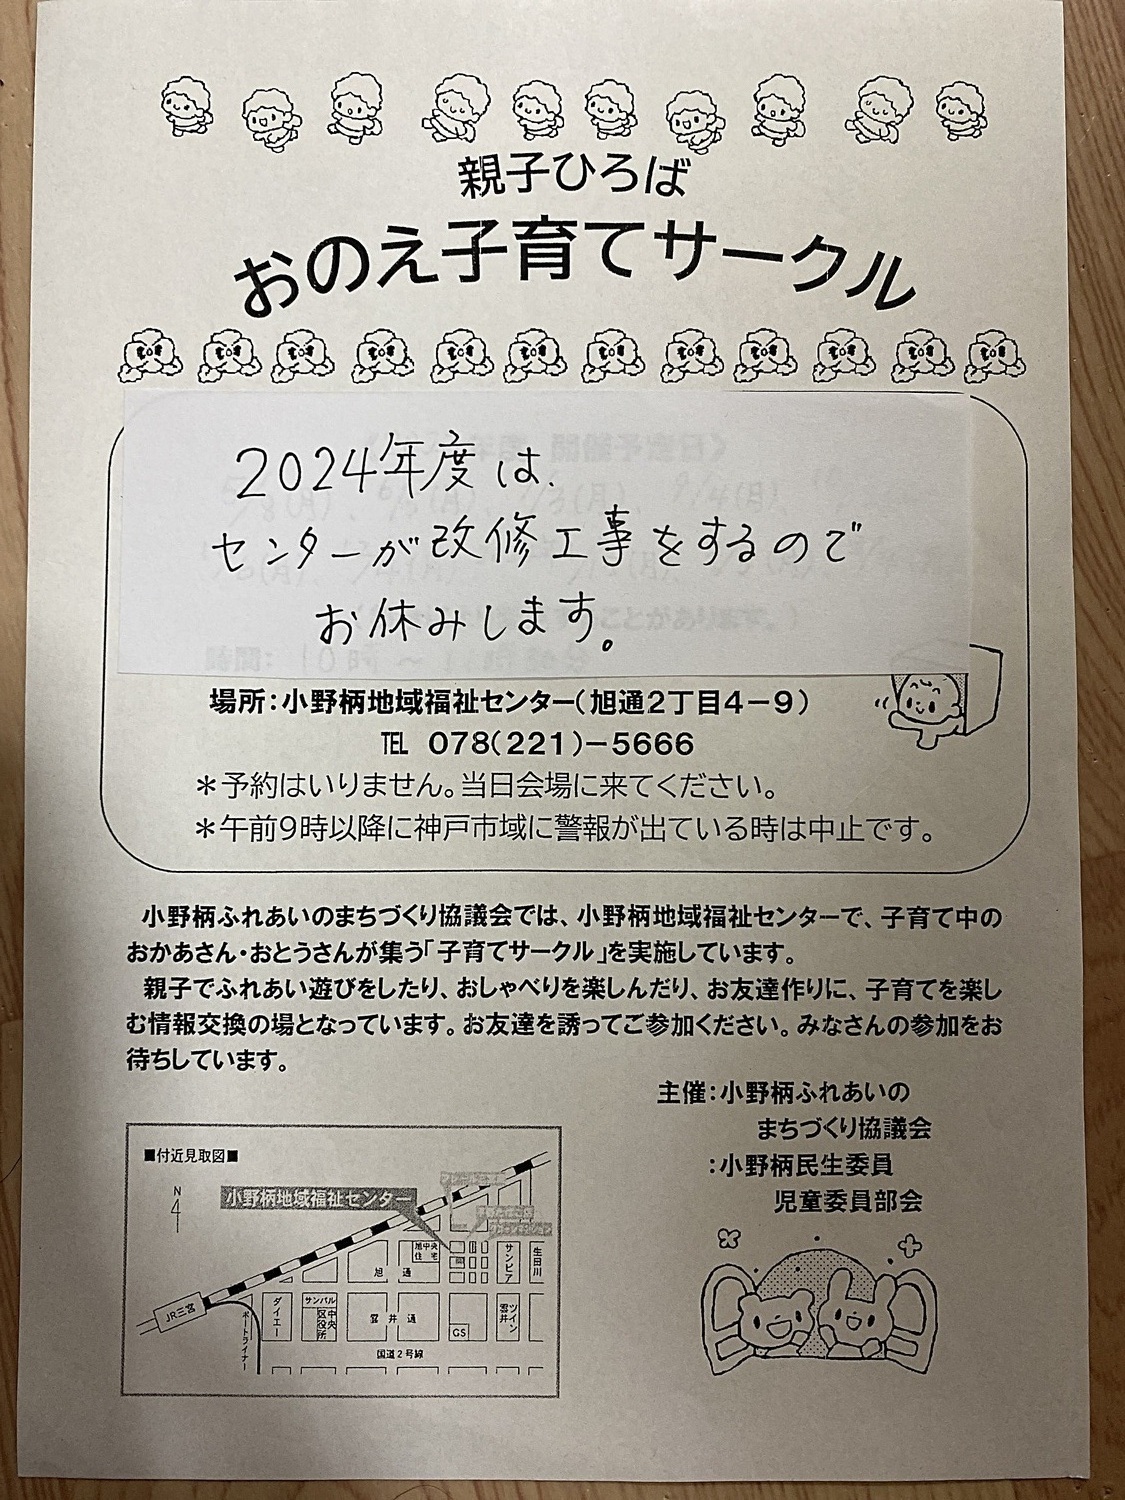 親子ひろば
おのえ子育てサークル
2024年度は、
センターが改修工事をするので
お休みします。
場所：小野柄地域福祉センター（旭通２丁目４－９）
℡ 078(221)-5666
＊予約はいりません。当日会場に来てください。
＊午前9時以降に神戸市域に警報が出ている時は中止です。
小野柄ふれあいのまちづくり協議会では、小野柄地域福祉センターで、子育て中の
おかあさん・おとうさんが集う「子育てサークル」を実施しています。
親子でふれあい遊びをしたり、おしゃべりを楽しんだり、お友達作りに、子育てを楽し
む情報交換の場となっています。お友達を誘ってご参加ください。みなさんの参加をお
待ちしています。
主催：小野柄ふれあいの
まちづくり協議会
：小野柄民生委員
児童委員部会
■付近見取図■
N
小野柄地域福祉センター
旭中央
住宅
旭通
サンピア
生田川
JR三宮
ポートライナー
ダイエー
サンパル
中央
区役所
雲井通
GS
雲井
ツイン
国道2号線